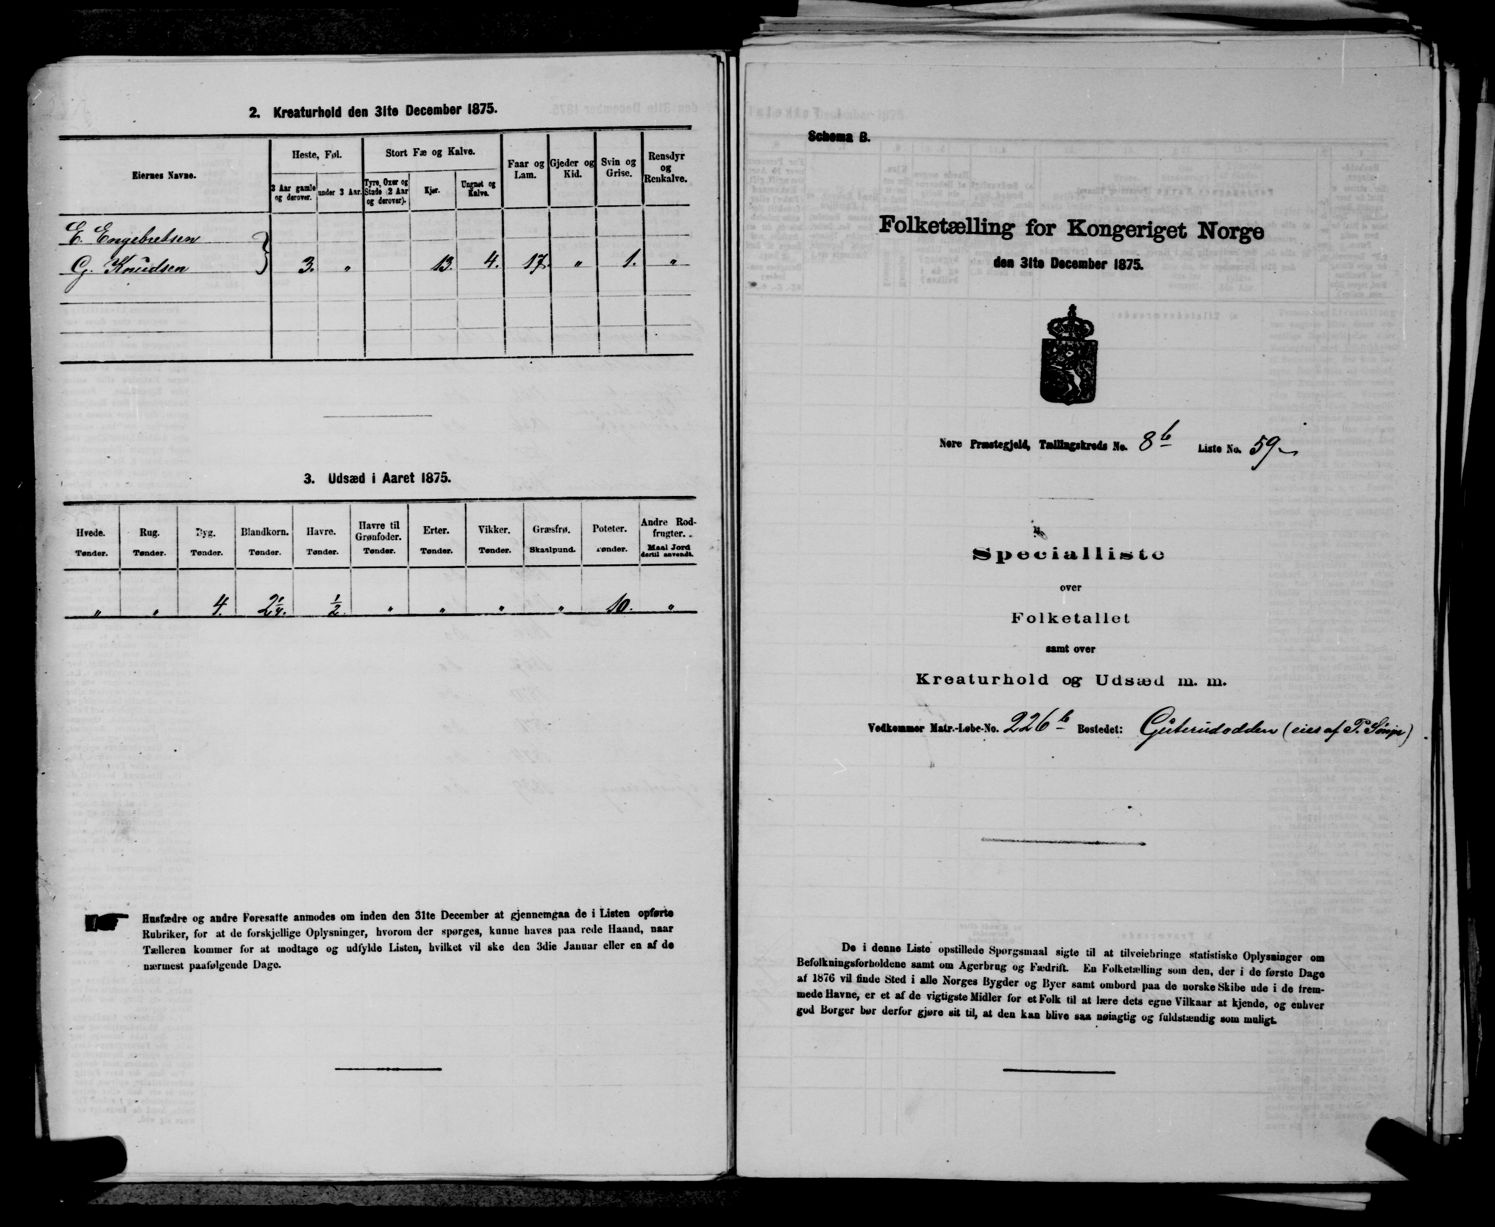 2. Kreaturhold den 31te December 1875.
Eiernes Navne.
Heste, Føl.
Stort Fæ og Kalve.
Faar og Lam.
Gjeder og Kid.
Svin og Grise.
Rensdyr og Renkalve.
3 Aar gamle og derover.
under 3 Aar.
Tyre, Oxer og Stude (2 Aar og derover).
Kjør.
Ungnøt og Kalve.
E. Engebretsen
G. Knudsen } 3. " 13. 4. 17. " 1. "
3. Udsæd i Aaret 1875.
Hvede. Rug. Byg. Blandkorn. Havre. Havre til Grønfoder. Erter. Vikker. Græsfrø. Poteter. Andre Rodfrugter.
Tønder. Tønder. Tønder. Tønder. Tønder. Tønder. Tønder. Tønder. Skaalpund. Tønder. Maal Jord dertil anvendt.
" " 4. 2 1/4. 1/2 " " " " 10. "
Husfædre og andre Foresatte anmodes om inden den 31te December at gjennemgaa de i Listen opførte
Rubriker, for at de forskjellige Oplysninger, hvorom der spørges, kunne haves paa rede Haand, naar
Tælleren kommer for at modtage og udfylde Listen, hvilket vil ske den 3die Januar eller en af de
nærmest paafølgende Dage.
Schema B.
Folketælling for Kongeriget Norge
den 31te December 1875.
Nore Præstegjeld, Tællingskreds No. 8b Liste No. 59
Specialliste
over
Folketallet
samt over
Kreaturhold og Udsæd m. m.
Vedkommer Matr.-Løbe-No. 226b Bostedet: Guterudodden (eies af P.
De i denne Liste opstillede Spørgsmaal sigte til at tilveiebringe statistiske Oplysninger om
Befolkningsforholdene samt om Agerbrug og Fædrift. En Folketælling som den, der i de første Dage
af 1876 vil finde Sted i alle Norges Bygder og Byer samt ombord paa de norske Skibe ude i de frem-
mede Havne, er et af de vigtigste Midler for et Folk til at lære dets egne Vilkaar at kjende, og enhver
god Borger bør derfor gjøre sit til, at den kan blive saa nøiagtig og fuldstændig som muligt.